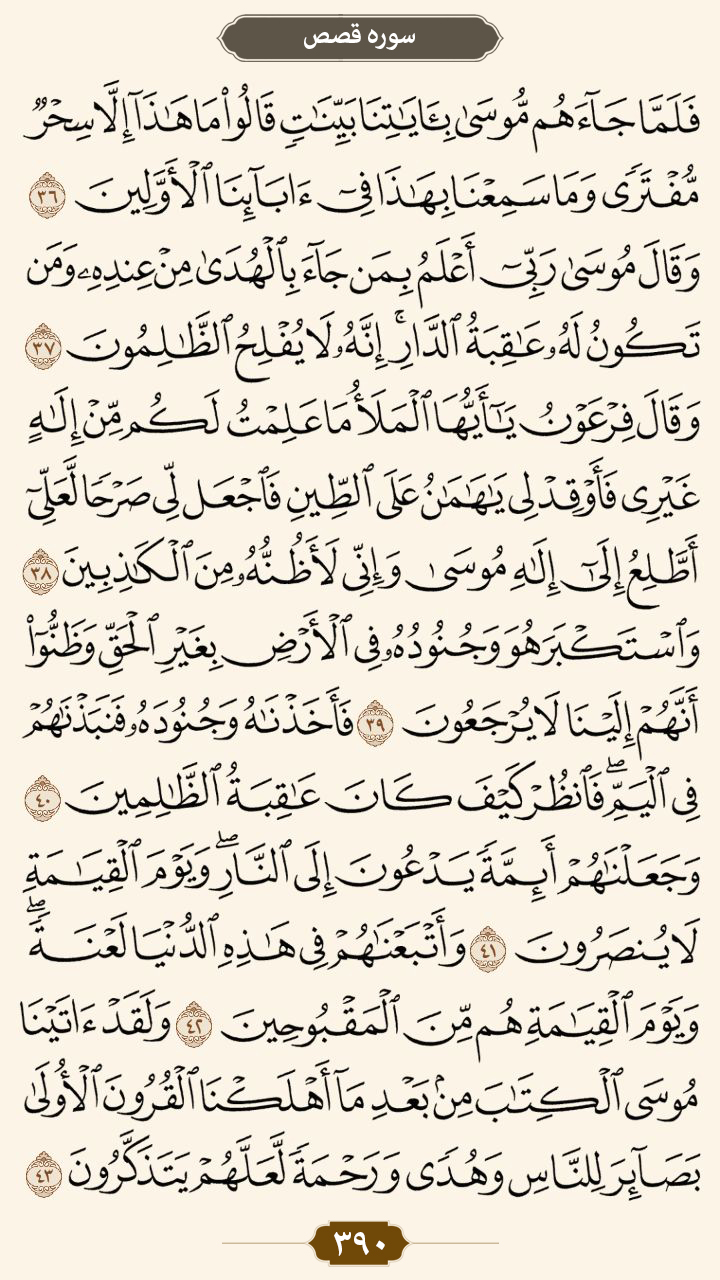 سوره قصص
فَلَمَّا جَآءَهُم مُّوسَىٰ بِـَٔايَـٰتِنَا بَيِّنَـٰتٍ قَالُوا۟ مَا هَـٰذَآ إِلَّا سِحْرٌ
مُّفْتَرًى وَمَا سَمِعْنَا بِهَـٰذَا فِىٓ ءَابَآئِنَا ٱلْأَوَّلِينَ ٣٦
وَقَالَ مُوسَىٰ رَبِّىٓ أَعْلَمُ بِمَن جَآءَ بِٱلْهُدَىٰ مِنْ عِندِهِۦ وَمَن
تَكُونُ لَهُۥ عَـٰقِبَةُ ٱلدَّارِ ۚ إِنَّهُۥ لَا يُفْلِحُ ٱلظَّـٰلِمُونَ ٣٧
وَقَالَ فِرْعَوْنُ يَـٰٓأَيُّهَا ٱلْمَلَأُ مَا عَلِمْتُ لَكُم مِّنْ إِلَـٰهٍ
غَيْرِى فَأَوْقِدْ لِى يَـٰهَـٰمَـٰنُ عَلَى ٱلطِّينِ فَٱجْعَل لِّى صَرْحًا لَّعَلِّىٓ
أَطَّلِعُ إِلَىٰٓ إِلَـٰهِ مُوسَىٰ وَإِنِّى لَأَظُنُّهُۥ مِنَ ٱلْكَـٰذِبِينَ ٣٨
وَٱسْتَكْبَرَ هُوَ وَجُنُودُهُۥ فِى ٱلْأَرْضِ بِغَيْرِ ٱلْحَقِّ وَظَنُّوٓا۟
أَنَّهُمْ إِلَيْنَا لَا يُرْجَعُونَ ٣٩ فَأَخَذْنَـٰهُ وَجُنُودَهُۥ فَنَبَذْنَـٰهُمْ
فِى ٱلْيَمِّ ۖ فَٱنظُرْ كَيْفَ كَانَ عَـٰقِبَةُ ٱلظَّـٰلِمِينَ ٤٠
وَجَعَلْنَـٰهُمْ أَئِمَّةً يَدْعُونَ إِلَى ٱلنَّارِ ۖ وَيَوْمَ ٱلْقِيَـٰمَةِ
لَا يُنصَرُونَ ٤١ وَأَتْبَعْنَـٰهُمْ فِى هَـٰذِهِ ٱلدُّنْيَا لَعْنَةً ۖ
وَيَوْمَ ٱلْقِيَـٰمَةِ هُم مِّنَ ٱلْمَقْبُوحِينَ ٤٢ وَلَقَدْ ءَاتَيْنَا
مُوسَى ٱلْكِتَـٰبَ مِنۢ بَعْدِ مَآ أَهْلَكْنَا ٱلْقُرُونَ ٱلْأُولَىٰ
بَصَآئِرَ لِلنَّاسِ وَهُدًى وَرَحْمَةً لَّعَلَّهُمْ يَتَذَكَّرُونَ ٤٣
٣٩٠